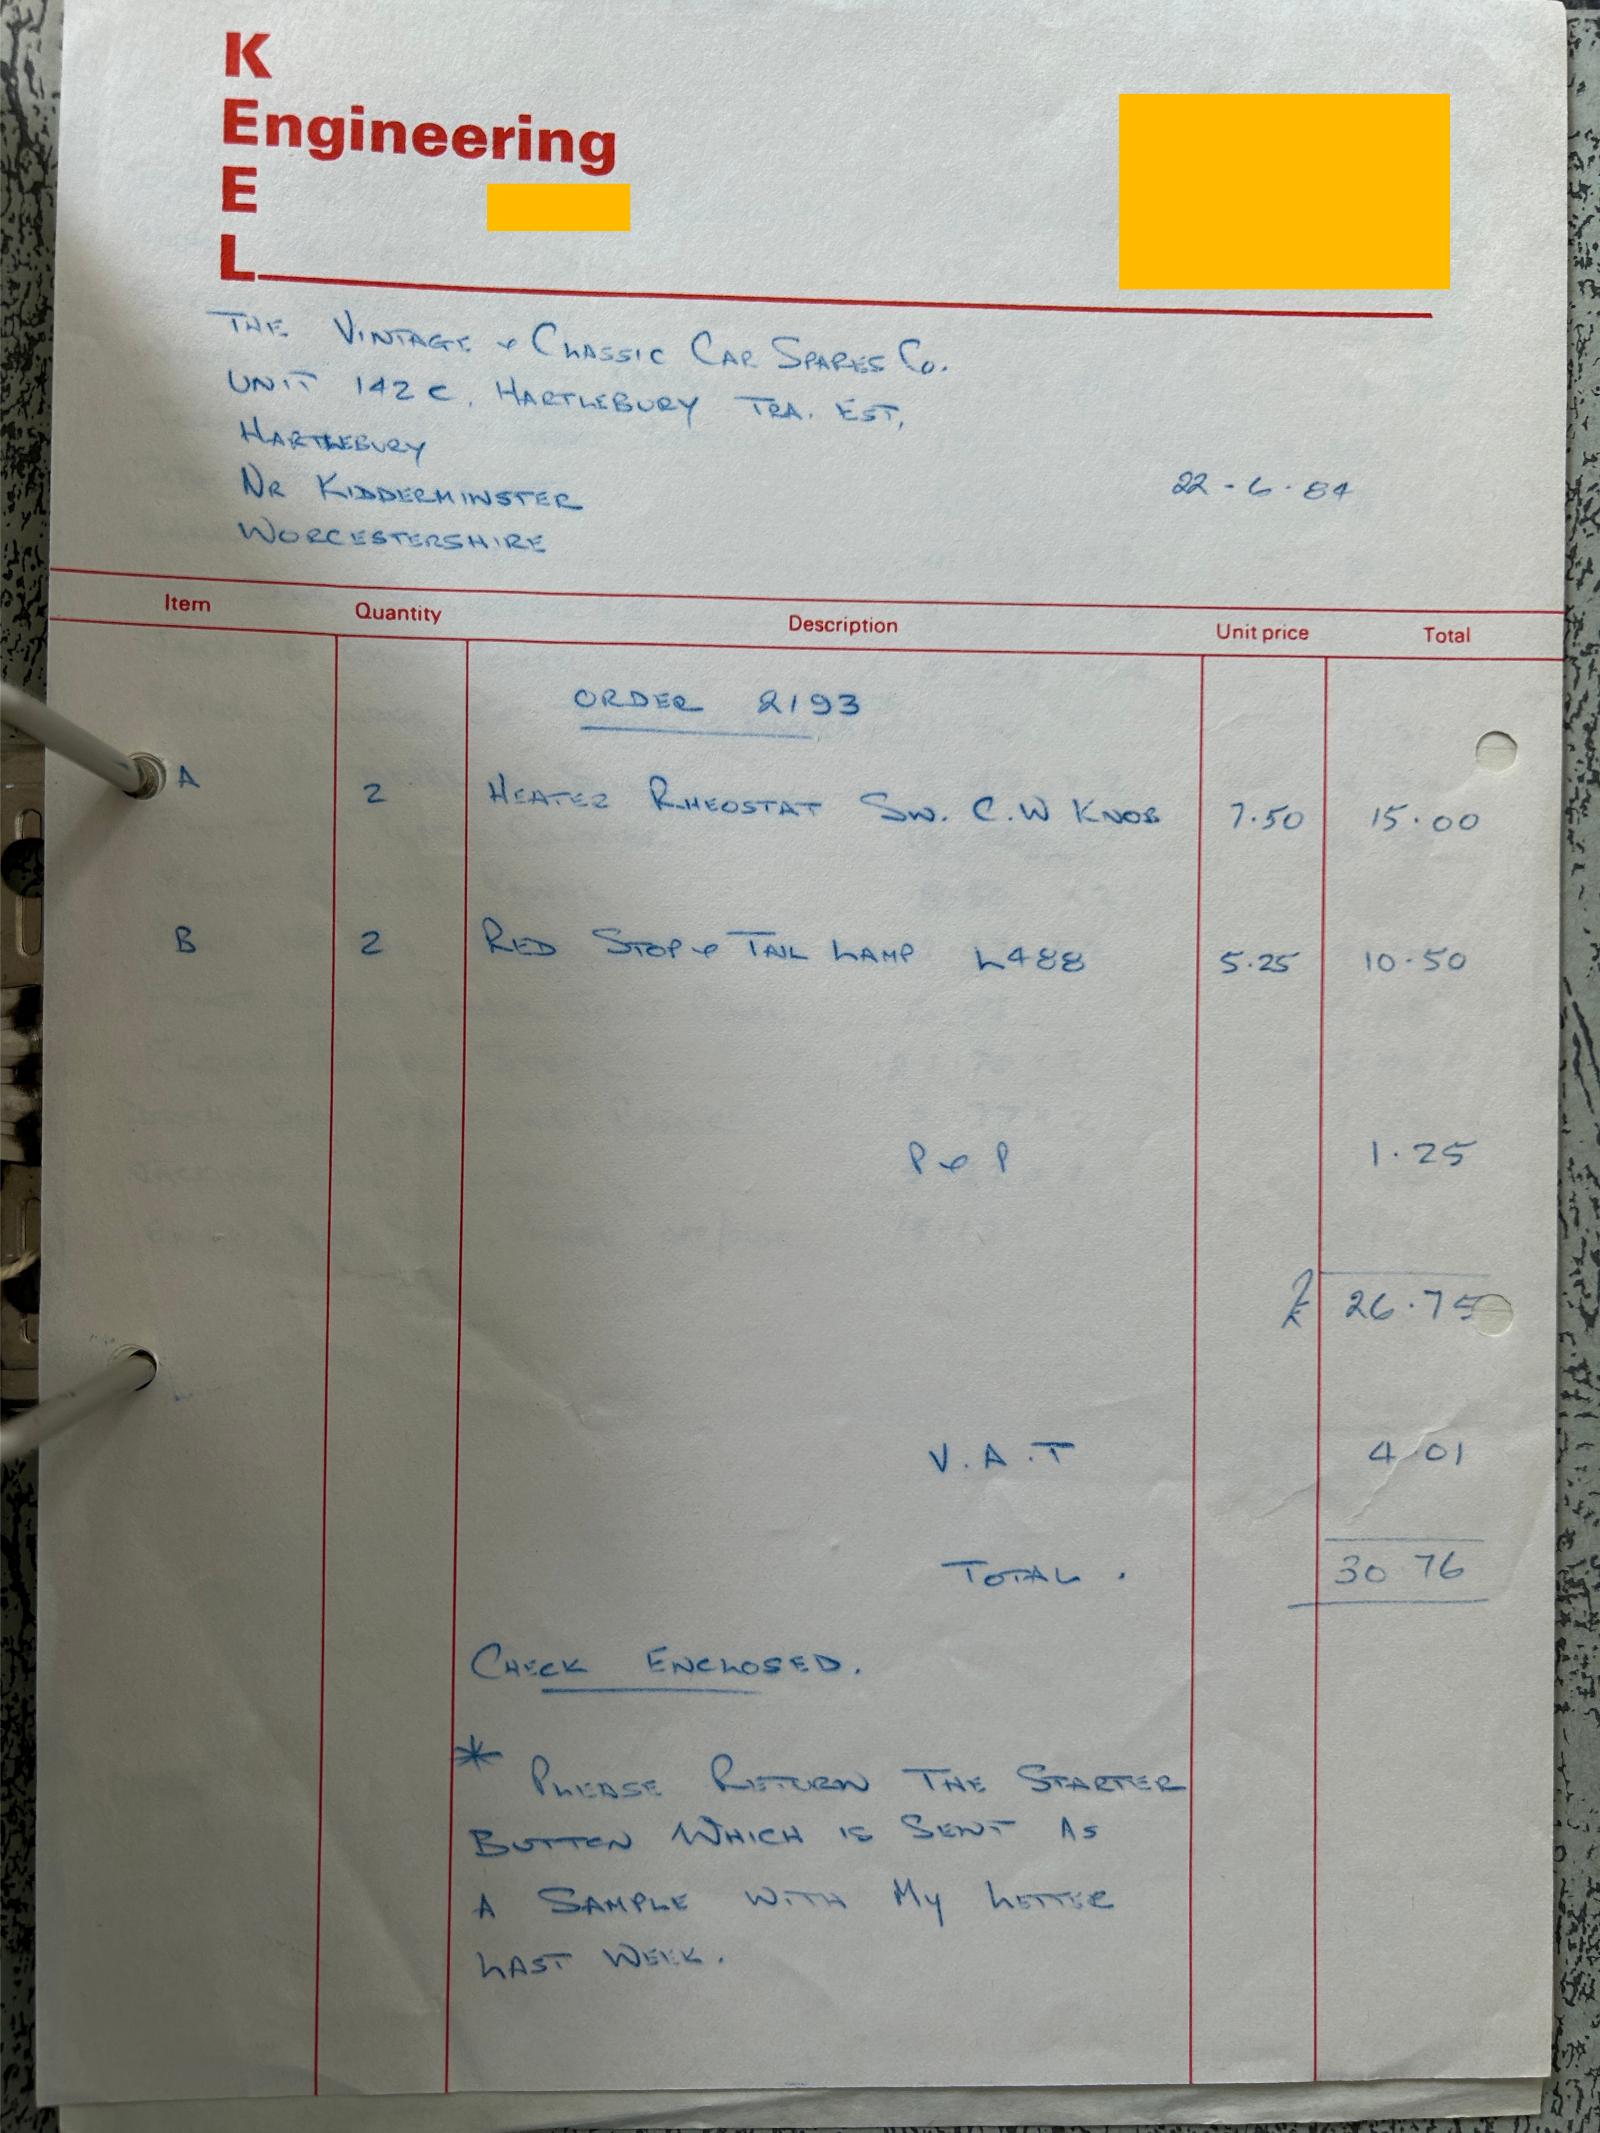 K
Engineering
E
L
THE VINTAGE & CLASSIC CAR SPARES Co.
UNIT 142 C, HARTLEBURY TRA. EST,
HARTLEBURY
NR KIDDERMINSTER
22-6-84
WORCESTERSHIRE
Item Quantity Description Unit price Total
ORDER 2193
A 2 HEATER RHEOSTAT SW. C.W KNOB 7.50 15.00
B 2 RED STOP & TAIL LAMP L488 5.25 10.50
P & P 1.25
£ 26.75
V.A.T 4 01
TOTAL. 30 76
CHECK ENCLOSED.
* PLEASE RETURN THE STARTER
BUTTON WHICH IS SENT AS
A SAMPLE WITH MY LETTER
LAST WEEK.